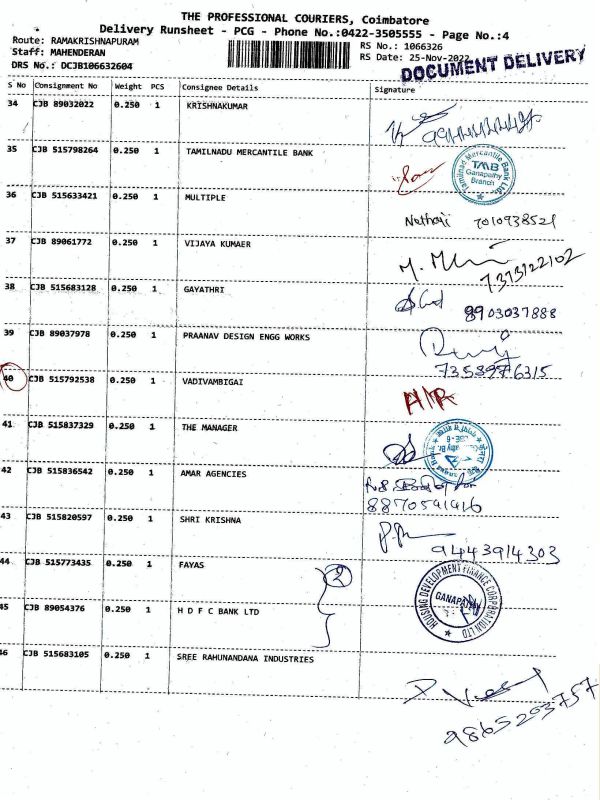 THE PROFESSIONAL COURIERS, Coimbatore
Delivery Runsheet - PCG - Phone No.:0422-3505555 - Page No.:4
Route: RAMAKRISHNAPURAM
Staff: MAHENDERAN
DRS No.: DCJB106632604
RS No.: 1066326
RS Date: 25-Nov-2022
DOCUMENT DELIVERY
S No Consignment No Weight PCS Consignee Details Signature
34 CJB 89032022 0.250 1 KRISHNAKUMAR
35 CJB 515798264 0.250 1 TAMILNADU MERCANTILE BANK
Tamilnad Mercantile Bank Ltd.
TMB
Ganapathy
Branch
36 CJB 515633421 0.250 1 MULTIPLE
Nethaji 7010938521
37 CJB 89061772 0.250 1 VIJAYA KUMAER
7373122102
38 CJB 515683128 0.250 1 GAYATHRI
8903037888
39 CJB 89037978 0.250 1 PRAANAV DESIGN ENGG WORKS
7358976315
40 CJB 515792538 0.250 1 VADIVAMBIGAI
41 CJB 515837329 0.250 1 THE MANAGER
42 CJB 515836542 0.250 1 AMAR AGENCIES
8870591916
43 CJB 515820597 0.250 1 SHRI KRISHNA
9443914303
44 CJB 515773435 0.250 1 FAYAS
2
HOUSING DEVELOPMENT FINANCE CORPORATION LTD
GANAPATHY
45 CJB 89054376 0.250 1 H D F C BANK LTD
46 CJB 515683105 0.250 1 SREE RAHUNANDANA INDUSTRIES
9865293757